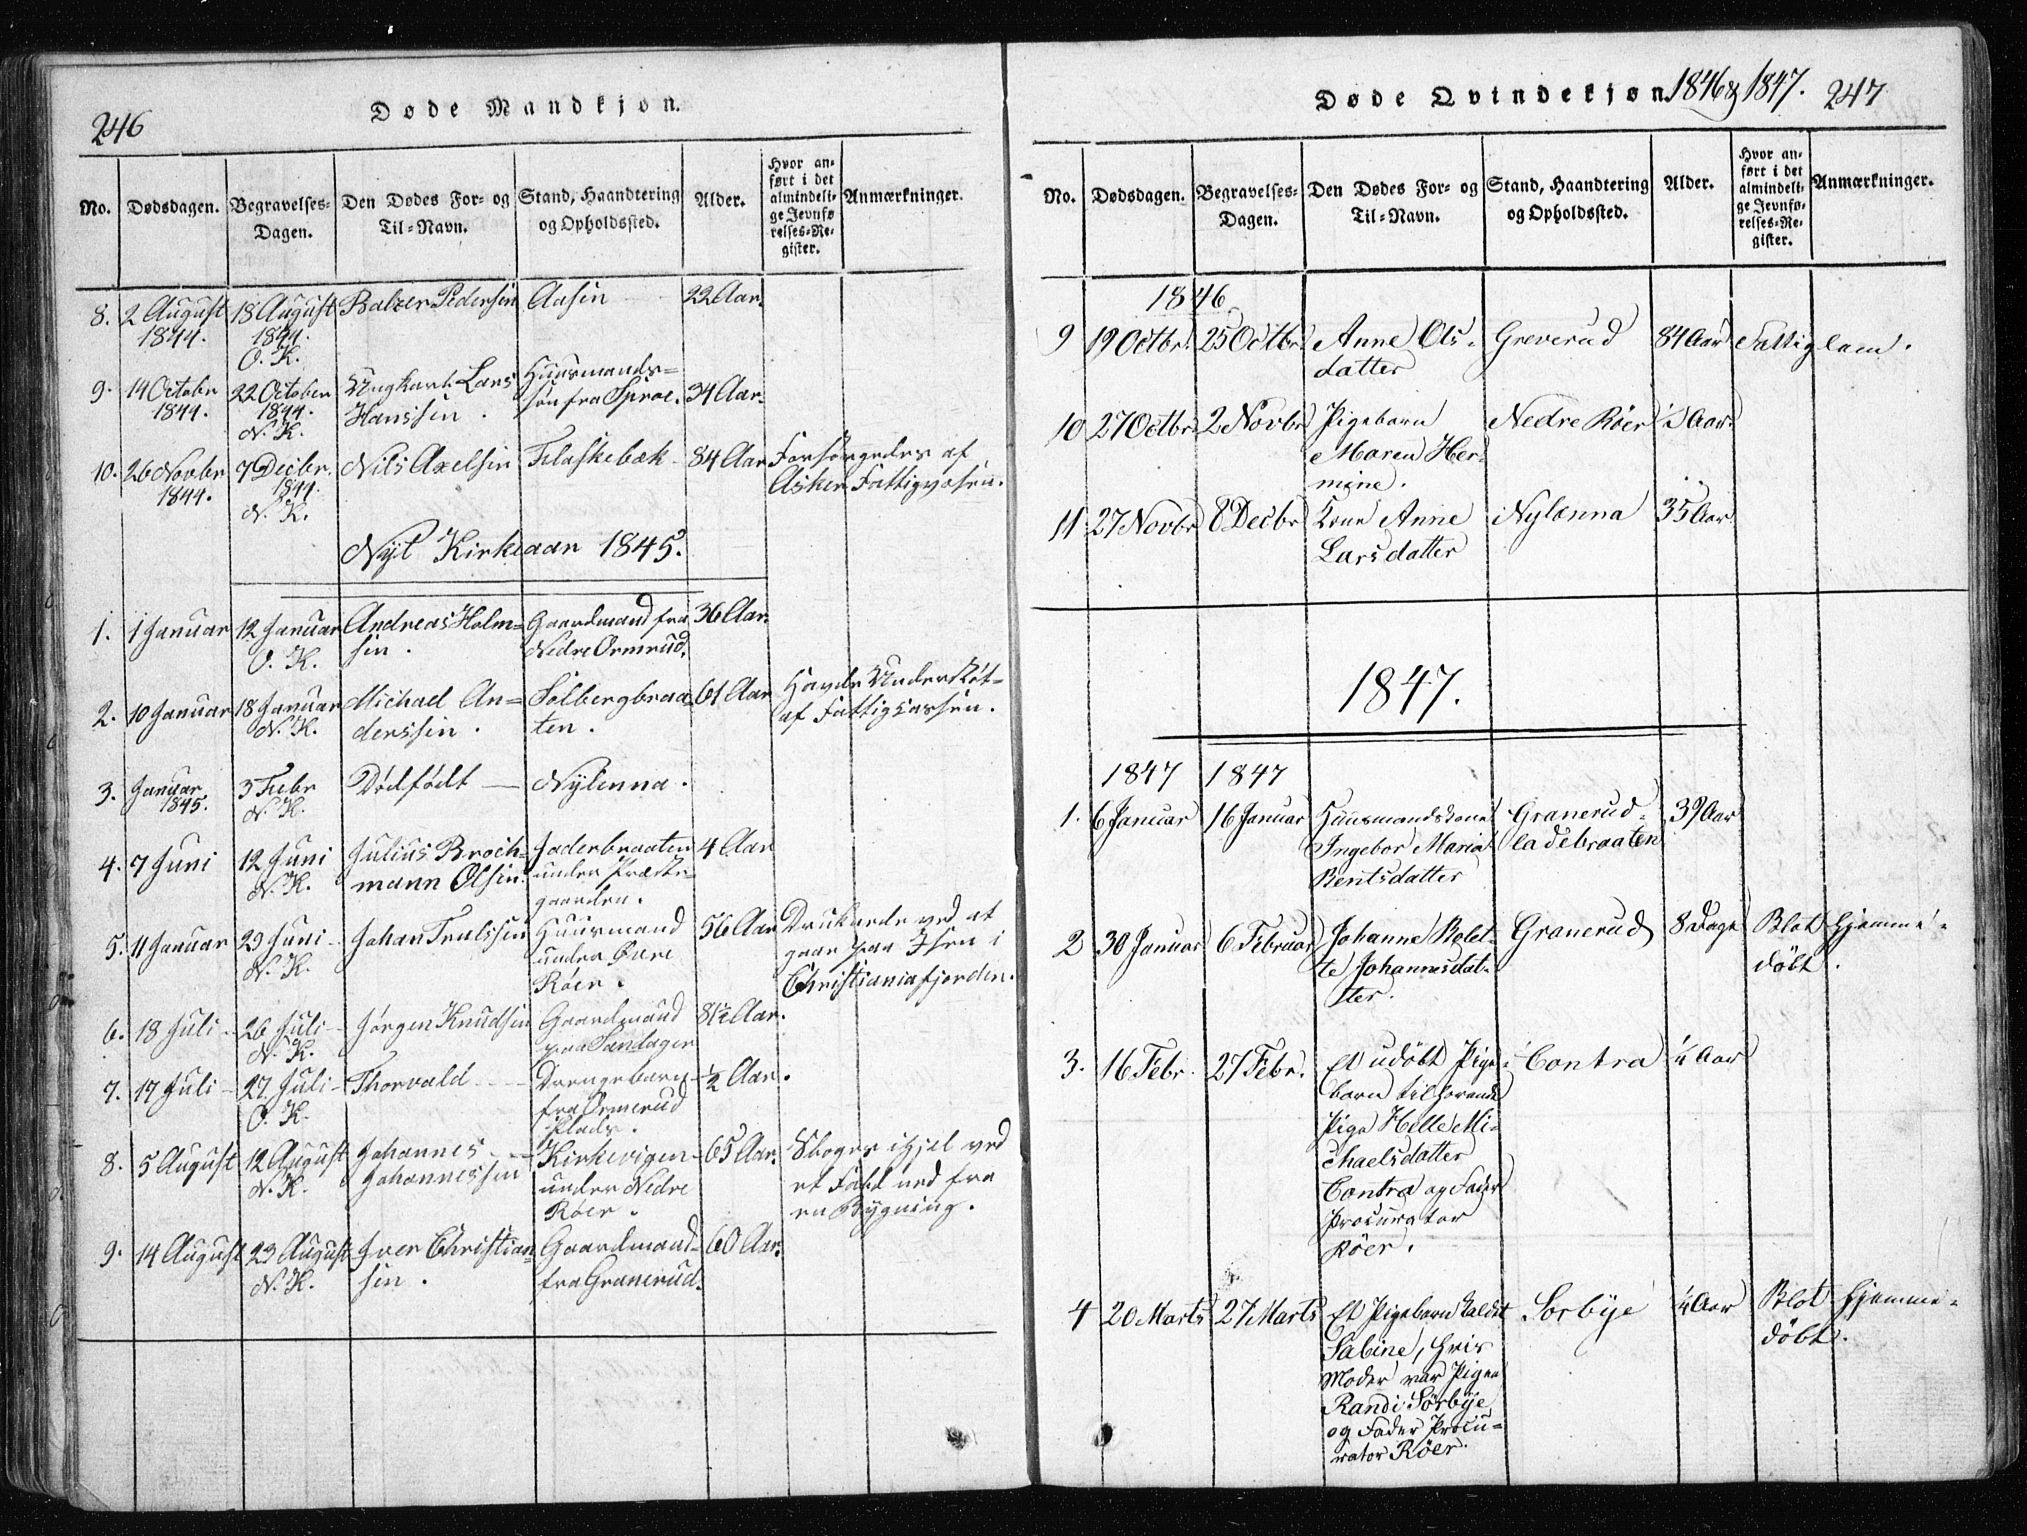 246
Døde Mandkjøn.
No. Dødsdagen. Begravelses-Dagen. Den Dødes For- og Til-Navn. Stand, Haandtering og Opholdssted. Alder. Hvor anført i det almindelige Jevnførelses-Register. Anmærkninger.
8. 2 August 18 August Balzer Pedersen Aasen 22 Aar.
1844. 1844.
O. K.
9. 14 Octobr 22 October Ungkarl Lars Huusmands- 34 Aar.
1844. 1844. Hanssen. søn fra Sproe.
N. K.
10. 26 Novbr 7 Decbr. Nils Axelsen Flaskebæk 84 Aar Forsørgedes af
1844. 1844. Asker Fattigvæsen.
N. K.
Nyt Kirkeaar 1845.
1. 1 Januar 12 Januar Andreas Holm- Gaardmand fra 36 Aar.
O. K. sen. Nedre Ormrud.
2. 10 Januar 18 Januar Michael An- Solbergbraa- 61 Aar Havde Understøt-
N. K. derssen. ten. af Fattigcassen.
3. Januar 3 Febr Dødfødt — Nylenna.
1845. N. K.
4. 7 Juni 12 Juni Julius Broch- Jaderbraaten 4 Aar
N. K. mann Olsen. under Præste-
gaarden.
5. 11 Januar 29 Juni Johan Trulssen Huusmand 56 Aar Druknede ved at
N. K. under Øvre gaae paa Isen i
Røer. Christianiafjorden.
6. 18 Juli 26 Juli Jørgen Knudsen Gaardmand 81½ Aar.
N. K. paa Søndager
7. 17 Juli 27 Juli Thorvald Drengebarn ½ Aar.
O. K. fra Ormerud
Plads.
8. 5 August 12 August Johannes Kirkevigen 65 Aar. Sloges ihjel ved
N. K. Johannessen under Nedre et Fald ned fra
Røer. en Bygning.
9. 14 August 23 August Iver Christian- Gaardmand 60 Aar.
N. K. sen. fra Granerud.
Døde Qvindekjøn 1846 & 1847. 247
No. Dødsdagen. Begravelses-Dagen. Den Dødes For- og Til-Navn. Stand, Haandtering og Opholdssted. Alder. Hvor anført i det almindelige Jevnførelses-Register. Anmærkninger.
1846
9 19 Octbr. 25 Octbr. Anne Ols- Greverud 84 Aar Fattiglem.
datter
10 27 Octbr. 2 Novbr Pigebarn Nedre Röer Aar.
Maren Her-
mine.
11 27 Novbr 8 Decbr Kone Anne Nylænna 35 Aar
Larsdatter
1847.
1847 1847
1. 6 Januar 16 Januar Huusmandskone Granerud- 39 Aar
Ingebor Maria ladebraaten
Bentsdatter
2 30 Januar 6 Februar Johanne Bolet- Granerud 8 Dage Blot hjemme-
te Johannesdat- døbt.
ter.
3. 16 Febr. 27 Febr. Et udöbt Pige- Contra ¼ Aar
barn tilhørende
Pige Helle Mi-
chaelsdatter
Contra og Fader
Procurator
Röer.
4 20 Marts 27 Marts Et Pigebarn kaldet Sorbye ¼ Aar Blot hjemme-
Sabine, hvis døbt.
Moder var Pigen
Randi Sörbye
og Fader Procu-
rator Röer.